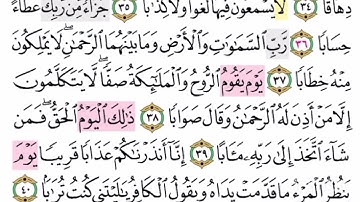 دِهَاقًا ﴿٣٤﴾ لَّا يَسْمَعُونَ فِيهَا لَغْوًا وَلَا كِذَّٰبًا ﴿٣٥﴾ جَزَآءً مِّن رَّبِّكَ عَطَآءً
حِسَابًا ﴿٣٦﴾ رَّبِّ ٱلسَّمَٰوَٰتِ وَٱلْأَرْضِ وَمَا بَيْنَهُمَا ٱلرَّحْمَٰنِ ۖ لَا يَمْلِكُونَ
مِنْهُ خِطَابًا ﴿٣٧﴾ يَوْمَ يَقُومُ ٱلرُّوحُ وَٱلْمَلَٰٓئِكَةُ صَفًّا ۖ لَّا يَتَكَلَّمُونَ
إِلَّا مَنْ أَذِنَ لَهُ ٱلرَّحْمَٰنُ وَقَالَ صَوَابًا ﴿٣٨﴾ ذَٰلِكَ ٱلْيَوْمُ ٱلْحَقُّ ۖ فَمَن
شَآءَ ٱتَّخَذَ إِلَىٰ رَبِّهِۦ مَـَٔابًا ﴿٣٩﴾ إِنَّآ أَنذَرْنَٰكُمْ عَذَابًا قَرِيبًا يَوْمَ
يَنظُرُ ٱلْمَرْءُ مَا قَدَّمَتْ يَدَاهُ وَيَقُولُ ٱلْكَافِرُ يَٰلَيْتَنِى كُنتُ تُرَٰبًۢا ﴿٤٠﴾